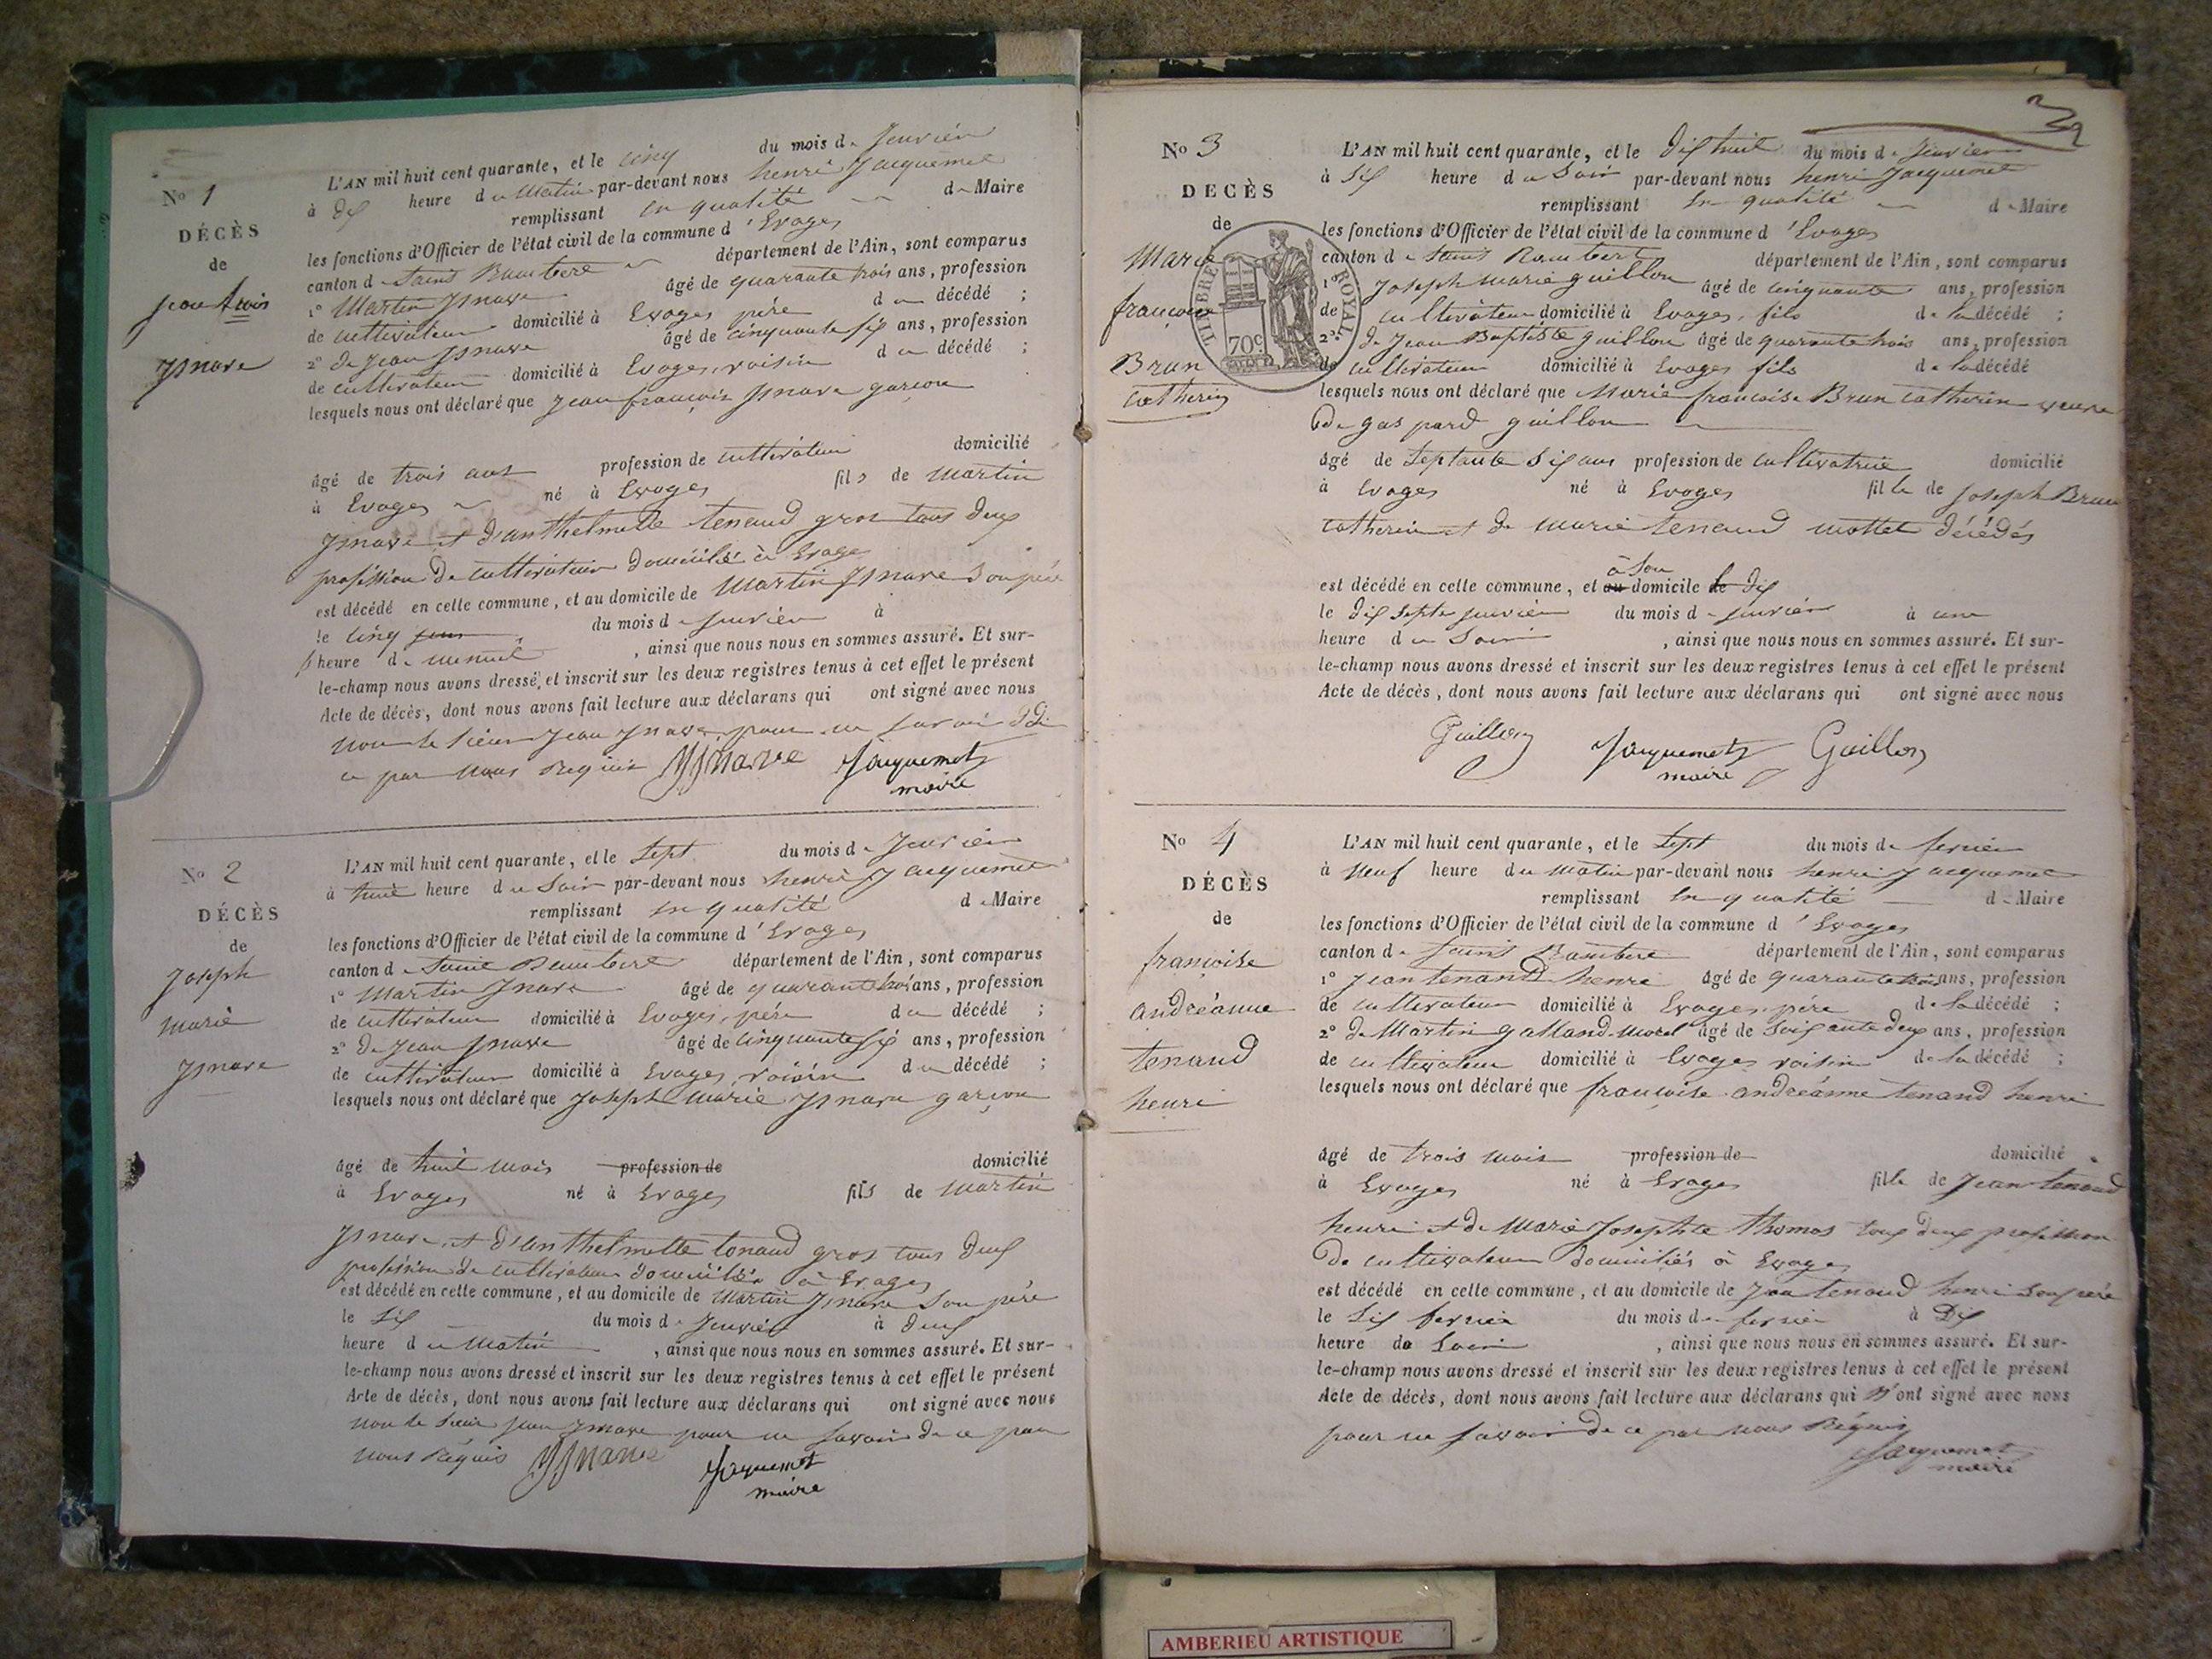 No 1
DÉCÈS
de
jean fcois
ysnave
L'AN mil huit cent quarante, et le cinq du mois de Janvier
à dix heure du Matin par-devant nous henri Jacquemet
remplissant en qualité de Maire
les fonctions d'Officier de l'état civil de la commune d'Evoges
canton de Saint Rambert département de l'Ain, sont comparus
1° Martin Ysnave âgé de quarante trois ans, profession
de cultivateur domicilié à Evoges père du décédé ;
2° de Jean Ysnave âgé de cinquante six ans, profession
de cultivateur domicilié à Evoges, voisin du décédé ;
lesquels nous ont déclaré que Jean françois ysnave garçon
âgé de trois ans profession de cultivateur domicilié
à Evoges né à Evoges fils de Martin
ysnave et d'anthelmette tenand gros tous deux
profession de cultivateur domicilié à Evoges
est décédé en cette commune, et au domicile de Martin ysnave son père
le cinq du mois de janvier à
heure de minuit, ainsi que nous nous en sommes assuré. Et sur-
le-champ nous avons dressé, et inscrit sur les deux registres tenus à cet effet le présent
Acte de décès, dont nous avons fait lecture aux déclarans qui ont signé avec nous
non le sieur Jean ysnave pour ne savoir de
ce par nous requis Ysnave Jacquemet
maire
No 2
DÉCÈS
de
Joseph
marie
ysnave
L'AN mil huit cent quarante, et le sept du mois de Janvier
à huit heure du Soir par-devant nous henri Jacquemet
remplissant en qualité de Maire
les fonctions d'Officier de l'état civil de la commune d'Evoges
canton de Saint Rambert département de l'Ain, sont comparus
1° Martin Ysnave âgé de quarante trois ans, profession
de cultivateur domicilié à Evoges, père du décédé ;
2° de Jean ysnave âgé de cinquante six ans, profession
de cultivateur domicilié à Evoges, voisin du décédé ;
lesquels nous ont déclaré que Joseph marie ysnave garçon
âgé de huit mois profession de domicilié
à Evoges né à Evoges fils de Martin
ysnave et d'anthelmette tenand gros tous deux
profession de cultivateur domiciliés à Evoges
est décédé en cette commune, et au domicile de Martin ysnave son père
le six du mois de Janvier à deux
heure du Matin, ainsi que nous nous en sommes assuré. Et sur-
le-champ nous avons dressé et inscrit sur les deux registres tenus à cet effet le présent
Acte de décès, dont nous avons fait lecture aux déclarans qui ont signé avec nous
non le sieur jean ysnave pour ne savoir de ce par
nous Réquis Ysnave Jacquemet
maire
No 3
DECÈS
de
Marie
françoise
Brun
catherin
TIMBRE ROYAL
70c
L'AN mil huit cent quarante, et le dix huit du mois de Janvier
à Six heure du Soir par-devant nous henri Jacquemet
remplissant en qualité de Maire
les fonctions d'Officier de l'état civil de la commune d'Evoges
canton de Saint Rambert département de l'Ain, sont comparus
1° Joseph marie guillon âgé de cinquante ans, profession
de cultivateur domicilié à Evoges, fils de la décédé ;
2° de Jean Baptiste guillon âgé de quarante trois ans, profession
de cultivateur domicilié à Evoges fils de la décédé
lesquels nous ont déclaré que Marie françoise Brun catherin veuve
de gaspard guillon
âgé de Septante six ans profession de cultivatrice domicilié
à Evoges né à Evoges fille de Joseph Brun
catherin et de marie tenand mottet décédés
à Son
est décédé en cette commune, et au domicile le dix
le dix septe janvier du mois de janvier à une
heure du Soir, ainsi que nous nous en sommes assuré. Et sur-
le-champ nous avons dressé et inscrit sur les deux registres tenus à cet effet le présent
Acte de décès, dont nous avons fait lecture aux déclarans qui ont signé avec nous
Guillon Jacquemet Guillon
maire
No 4
DÉCÈS
de
françoise
andréanne
tenand
henri
L'AN mil huit cent quarante, et le Sept du mois de fevrier
à Neuf heure du Matin par-devant nous henri Jacquemet
remplissant en qualité de Maire
les fonctions d'Officier de l'état civil de la commune d'Evoges
canton de Saint Rambert département de l'Ain, sont comparus
1° Jean tenand henri âgé de quarante trois ans, profession
de cultivateur domicilié à Evoges, père de la décédé ;
2° de Martin galland-morel âgé de Soixante deux ans, profession
de cultivateur domicilié à Evoges voisin de la décédé ;
lesquels nous ont déclaré que françoise andréanne tenand henri
âgé de trois mois profession de domicilié
à Evoges né à Evoges fille de Jean tenand
henri et de Marie Josephte thomas tous deux profession
de cultivateur domiciliés à Evoges
est décédé en cette commune, et au domicile de Jean tenand henri Son père
le Six fevrier du mois de fevrier à Dix
heure du Soir, ainsi que nous nous en sommes assuré. Et sur-
le-champ nous avons dressé et inscrit sur les deux registres tenus à cet effet le présent
Acte de décès, dont nous avons fait lecture aux déclarans qui N'ont signé avec nous
pour ne savoir de ce par nous Réquis
Jacquemet
maire
AMBERIEU ARTISTIQUE